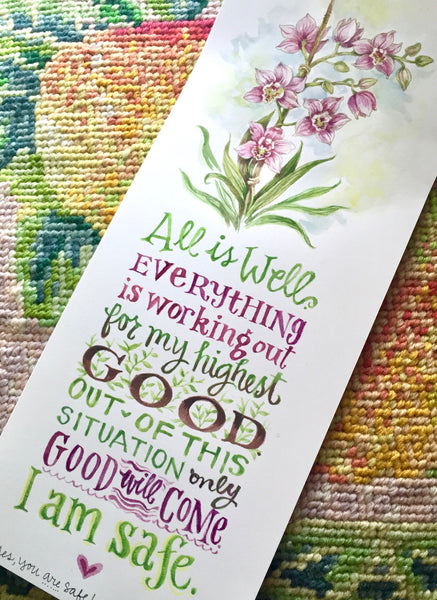 All is Well.
EVERYTHING
is working out
for my highest
GOOD.
OUT OF THIS
SITUATION only
GOOD will COME
I am safe.
yes, you are safe!